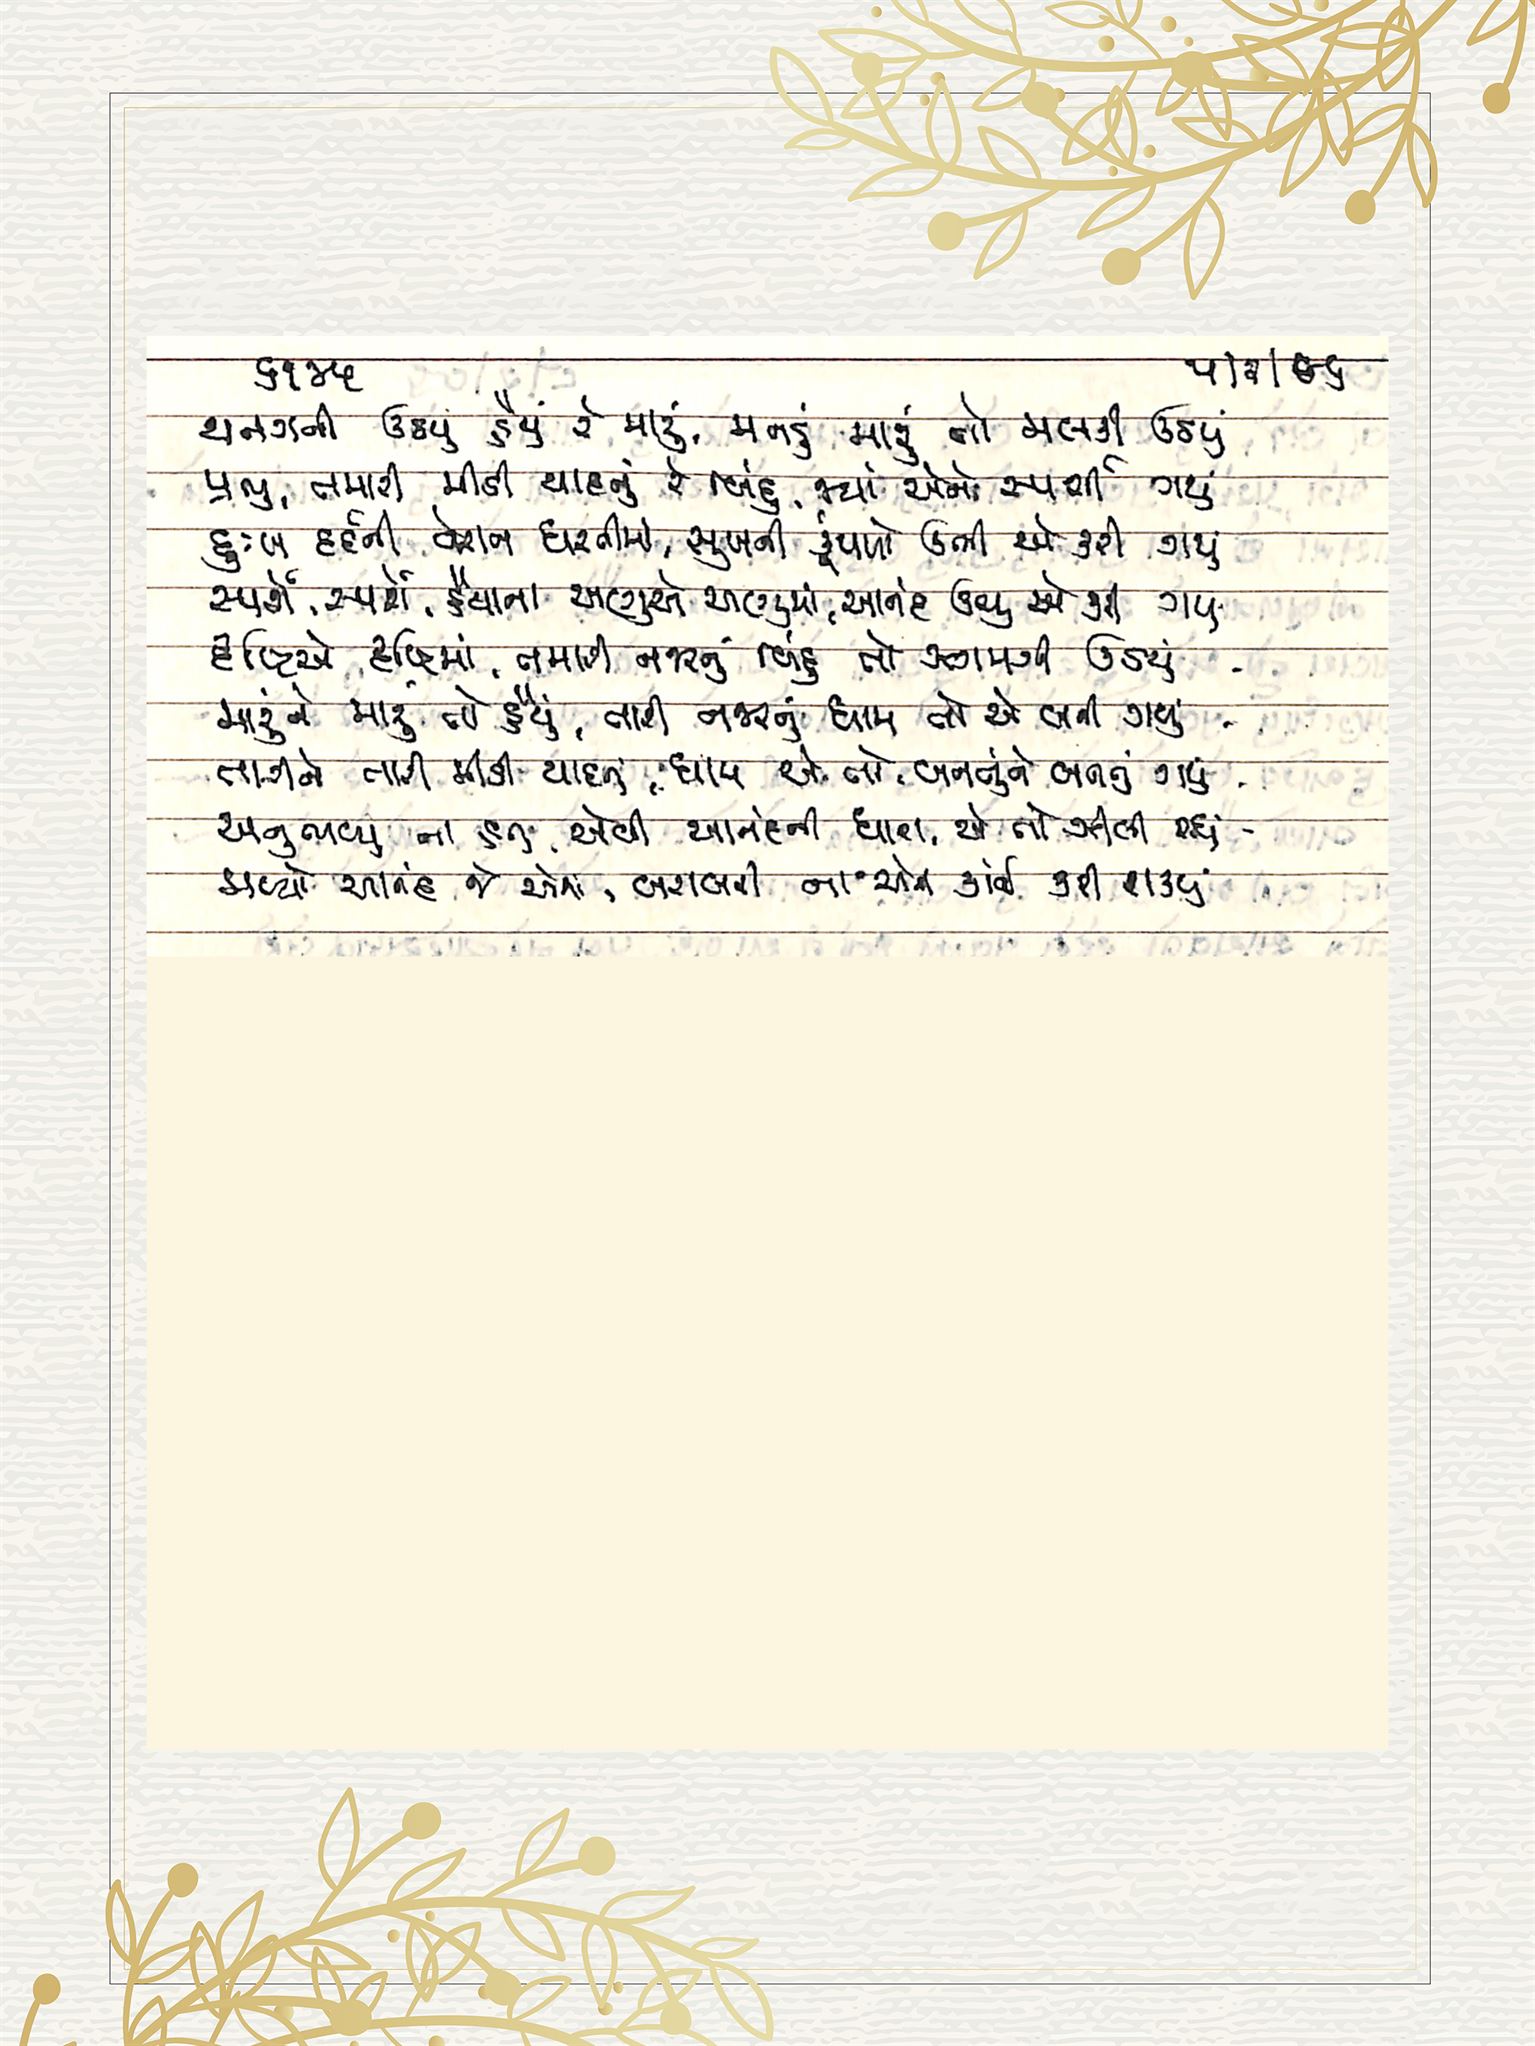 ૬૧૪૫ ૫/૨/૭૬
થનગની ઉઠયું હૈયું રે મારું, મનડું મારું તો મલકી ઉઠયું
પ્રભુ, તમારી મીઠી યાદનું રે બિંદુ, જ્યાં એને સ્પર્શી ગયું
દુઃખ દર્દની વેરાન ધરતીમાં, સુખની કૂંપળો ઉભી એ કરી ગયું
સ્પર્શે, સ્પર્શે, હૈયાના અણુએ અણુમાં, આનંદ ઉભુ એ કરી ગયુ
દૃષ્ટિએ દૃષ્ટિમાં, તમારી નજરનું બિંદુ તો ઝળામગી ઉઠયું -
મારુંને મારું તો હૈયું, તારી નજરનું ધામ તો એ બની ગયું -
તારીને તારી મીઠી યાદનું, ધામ એ તો, બનતુંને બનતું ગયું -
અનુભવ્યુ ના હતુ, એવી આનંદની ધારા, એ તો ઝીલી રહ્યું -
મળ્યો આનંદ જે એમાં, બરાબરી ના એની કોઈ કરી શકયું